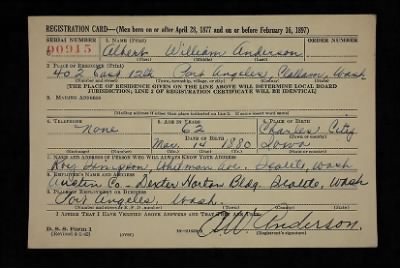 REGISTRATION CARD—(Men born on or after April 28, 1877 and on or before February 16, 1897)
SERIAL NUMBER 1. NAME (Print) ORDER NUMBER
00915 Albert William Anderson
(First) (Middle) (Last)
2. PLACE OF RESIDENCE (Print)
402 East 12th Port Angeles, Clallam, Wash
(Number and street) (Town, township, village, or city) (County) (State)
[THE PLACE OF RESIDENCE GIVEN ON THE LINE ABOVE WILL DETERMINE LOCAL BOARD
JURISDICTION; LINE 2 OF REGISTRATION CERTIFICATE WILL BE IDENTICAL]
3. MAILING ADDRESS
4. TELEPHONE 5. AGE IN YEARS 6. PLACE OF BIRTH
None 62 Charles City
DATE OF BIRTH
Mar. 14 1880 Iowa
(Exchange) (Number) (Mo.) (Day) (Yr.) (State or country)
7. NAME AND ADDRESS OF PERSON WHO WILL ALWAYS KNOW YOUR ADDRESS
Whitman Ave. Seattle, Wash
8. EMPLOYER'S NAME AND ADDRESS
Austin Co - Dexter Horton Bldg. Seattle, Wash
9. PLACE OF EMPLOYMENT OR BUSINESS
Port Angeles, Wash.
(Number and street or R. F. D. number) (Town) (County) (State)
I AFFIRM THAT I HAVE VERIFIED ABOVE ANSWERS AND THAT THEY ARE TRUE.
D. S. S. Form 1
A.W. Anderson.
(Registrant's signature)